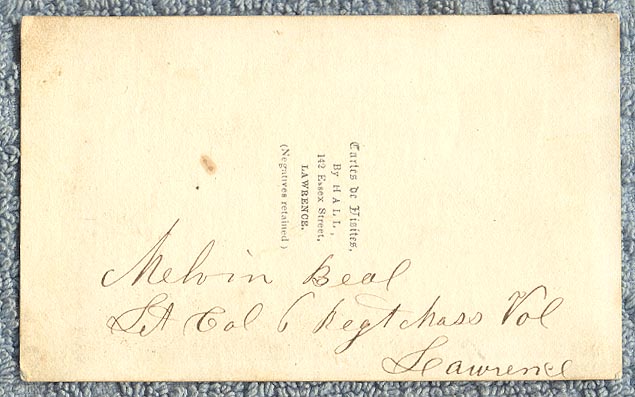 Cartes de Visites,
By HALL,
142 Essex Street,
LAWRENCE.
(Negatives retained)
Melvin Beal
Lt Col 6 Regt Mass Vol
Lawrence